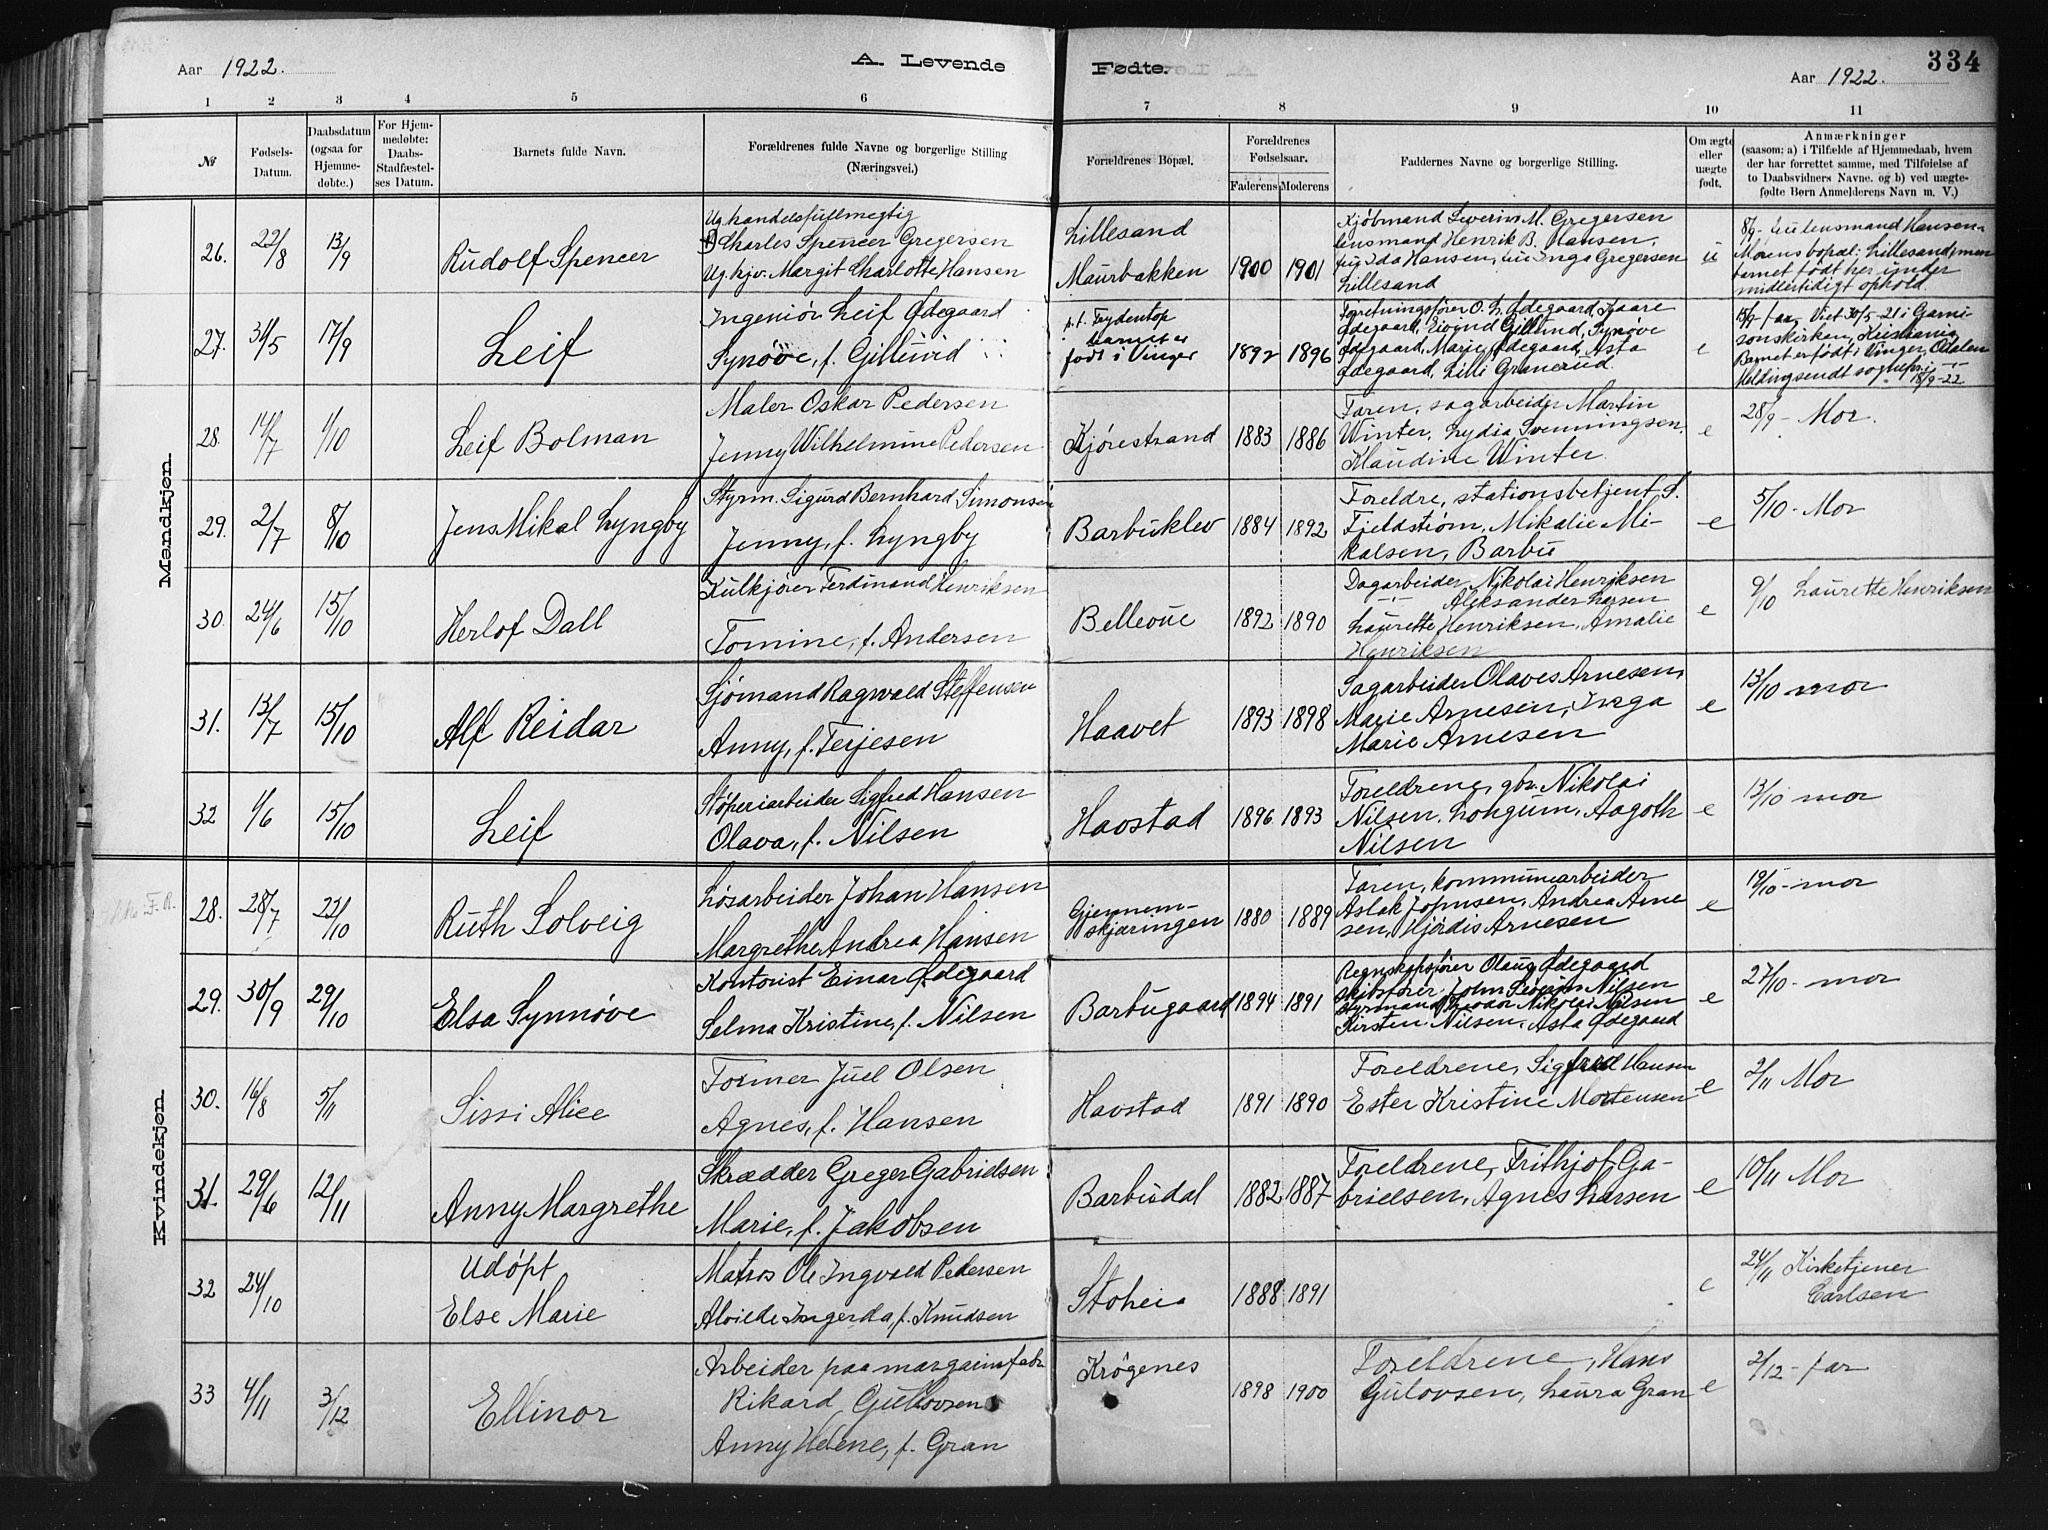 Aar 1922.
A. Levende
Fødte.
Aar 1922.
334
1 2 3 4 5 6 7 8 9 10 11
№
Fødsels-
Datum.
Daabsdatum
(ogsaa for
Hjemme-
døbte.)
For Hjem-
medøbte:
Daabs-
Stadfæstel-
ses Datum.
Barnets fulde Navn.
Forældrenes fulde Navne og borgerlige Stilling
(Næringsvei.)
Forældrenes Bopæl.
Forældrenes
Fødselsaar.
Faderens Moderens
Faddernes Navne og borgerlige Stilling.
Om ægte
eller
uægte
født.
Anmærkninger
(saasom: a) i Tilfælde af Hjemmedaab, hvem
der har forrettet samme, med Tilføielse af
to Daabsvidners Navne. og b) ved uægte-
fødte Børn Anmelderens Navn m. V.)
Mandkjøn.
26. 22/8 13/9
Rudolf Spencer
Ug. handelsfullmegtig
Charles Spencer Gregersen
Ug. hjv. Margit Charlotte Hansen
Lillesand
Maurbakken
1900 1901
Kjøbmand Severin M. Gregersen
lensmand Henrik B. Hansen,
fru Ida Hansen, fru Inga Gregersen
Lillesand
u
8/9 - fru lensmand Hansen.
Morens bopæl: Lillesand, men
barnet født her under
midlertidigt ophold.
27. 31/5 17/9
Leif
Ingeniør Leif Ødegaard
Synøve, f. Gillund
p.t. Frydentop
barnet er
født i Vinger
1892 1896
Forretningsfører O. L. Ødegaard, Kaare
Ødegaard, Eivind Gillund, Synøve
Ødegaard, Marie Ødegaard, Asta
Ødegaard, Lilli Granerud.
e
15/9 - far. Viet 30/5-21 i Garni
sonskirken, Kristiania
Barnet er født i Vinger, Odalen
Melding sendt sognepr. 18/9-22
28. 14/7 1/10
Leif Bolman
Maler Oskar Pedersen
Jenny Wilhelmine Pedersen
Kjørestrand
1883 1886
Faren, sagarbeider Martin
Winter, Lydia Svenningsen,
Klaudine Winter.
e
28/9 - Mor.
29. 2/7 8/10
Jens Mikal Lyngby
Styrm. Sigurd Bernhard Simonsen
Jenny, f. Lyngby
Barbuklev
1884 1892
Foreldre, stationsbetjent S.
Fjeldstrøm, Mikalie Mi-
kalsen, Barbu
e
5/10 - Mor
30. 24/6 15/10
Herlof Dall
Kulkjører Ferdinand Henriksen
Tomine, f. Andersen
Bellevue
1892 1890
Dagarbeider Nikolai Henriksen
Aleksander Larsen
Laurette Henriksen, Amalie
Henriksen
e
9/10 Laurette Henriksen
31. 13/7 15/10
Alf Reidar
Sjømand Ragwald Steffensen
Anny, f. Terjesen
Haavet
1893 1898
Sagarbeider Olaves Arnesen,
Marie Arnesen, Inga
Marie Arnesen
e
13/10 mor
32 1/6 15/10
Leif
Støperiarbeider Sigfred Hansen
Olava, f. Nilsen
Havstad
1896 1893
Foreldrene, gbr. Nikolai
Nilsen, Longum, Aagoth
Nilsen
e
13/10 - mor
Kvindekjøn.
28. 28/7 22/10
Ruth Solveig
Løsarbeider Johan Hansen
Margrethe Andrea Hansen
Gjennem-
skjæringen
1880 1889
Faren, kommunearbeider
Aslak Johnsen, Andrea Arne
sen, Hjørdis Arnesen
e
19/10 - mor
29. 30/9 29/10
Elsa Synnøve
Kontorist Einar Ødegaard
Selma Kristine, f. Nilsen
Barbugaard
1894 1891
Regnskapsfører Olaug Ødegaard
skibsfører John Severin Nilsen
Styrmand Theodor Nikolai Nilsen
Kirsten Nilsen, Asta Ødegaard
e
27/10 - mor
30. 16/8 5/11
Sissi Alice
Former Juel Olsen
Agnes, f. Hansen
Havstad
1891 1890
Foreldrene, Sigfred Hansen
Ester Kristine Mortensen
e
2/11 Mor
31. 29/6 12/11
Anny Margrethe
Skrædder Greger Gabrielsen
Marie, f. Jakobsen
Barbudal
1882 1887
Foreldrene, Frithjof Ga-
brielsen, Agnes Larsen
e
10/11 Mor
32 24/10
Udøpt
Else Marie
Matros Ole Ingvald Pedersen
Alvilde Ingerda, f. Knudsen
Stoheia
1888 1891
e
24/11 Kirketjener
Carlsen
33 4/11 3/12
Ellinor
Arbeider paa margarinfabr.
Rikard Gullovsen
Anny Helene, f. Gran
Krøgenes
1898 1900
Foreldrene, Hans
Gulovsen, Laura Gran
e
2/12 - far